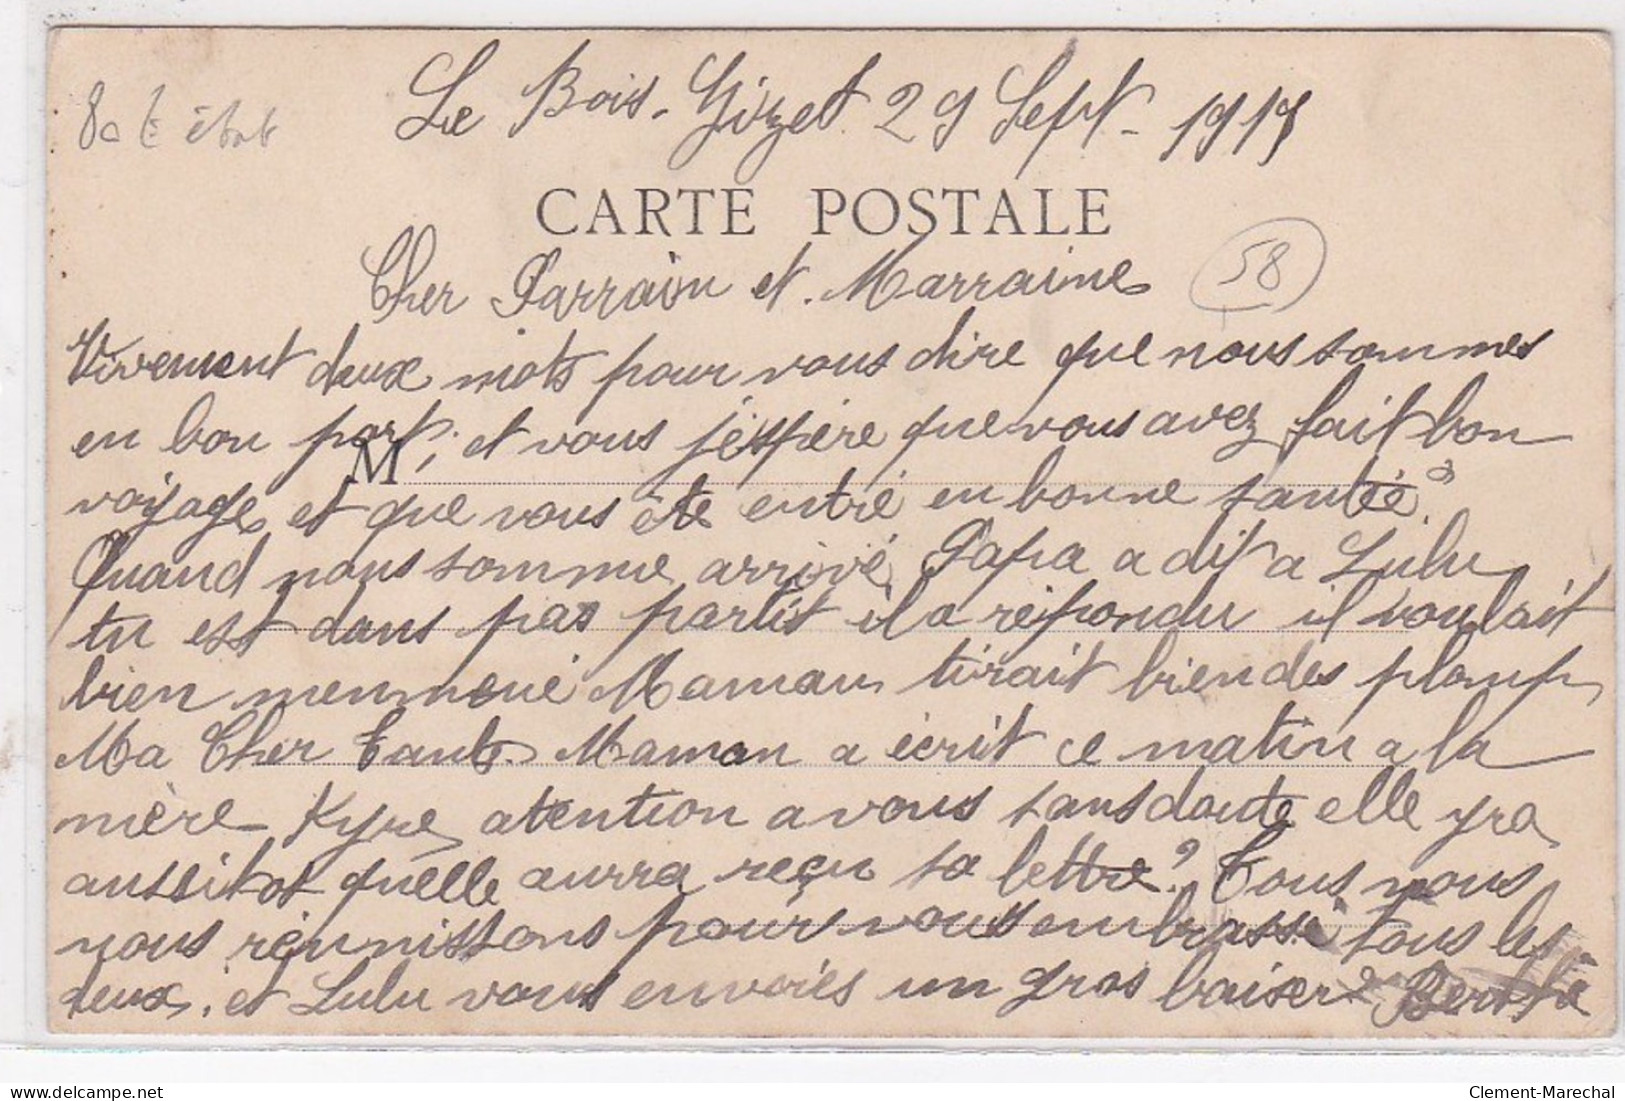 Le Bois-Gizet 29 Sept- 1917
8a
CARTE POSTALE
58
Cher Parrain et Marraine
Vivement deux mots pour vous dire que nous sommes
en bon port, et vous j'espère que vous avez fait bon
M
voyage, et que vous ête entré en bonne santée?
Quand nous somme arrivé Papa a dit a Lulu
tu est dans pas partit il a répondu il voulait
bien menmené Maman tirait bien des plomp
Ma Cher Tante Maman a écrit ce matin a la
mère Kyre atention a vous sans doute elle yra
aussitot quelle aurra reçu sa lettre? Tous nous
nous réunissons pours vous embrassé tous les
deux. et Lulu vous envoiés un gros baiser Berthe
Clement-Marechal